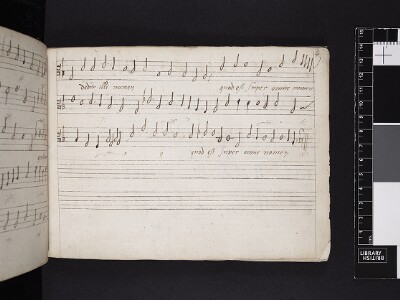 Dedit illi nomen quod est super omne nomen
quod est super omne nomen
LIBRARY
BRITISH